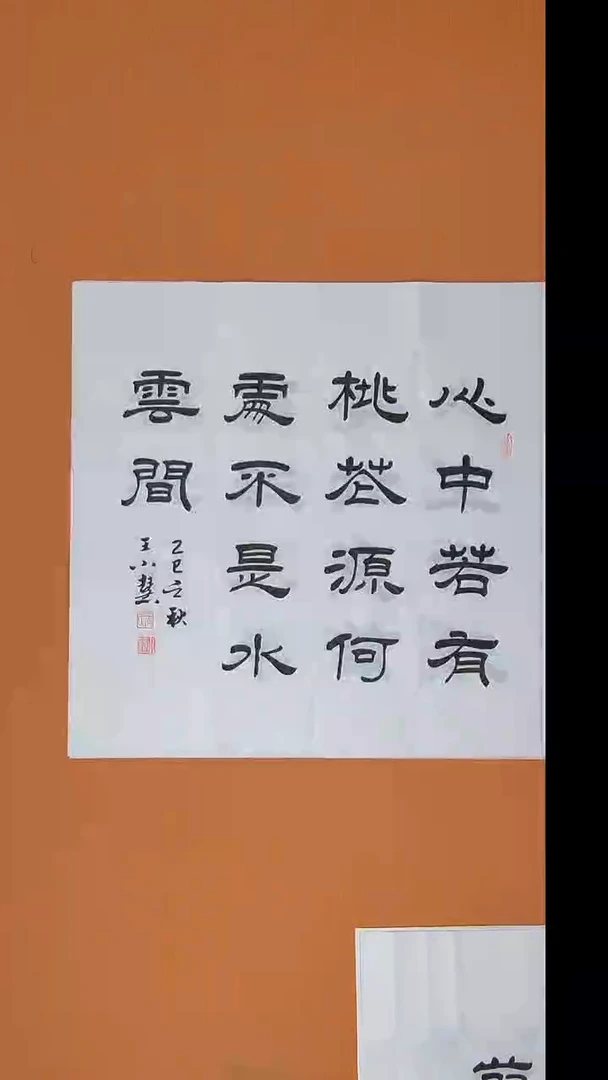 心中若有
桃花源何
處不是水
雲間
乙巳立秋
王小慧